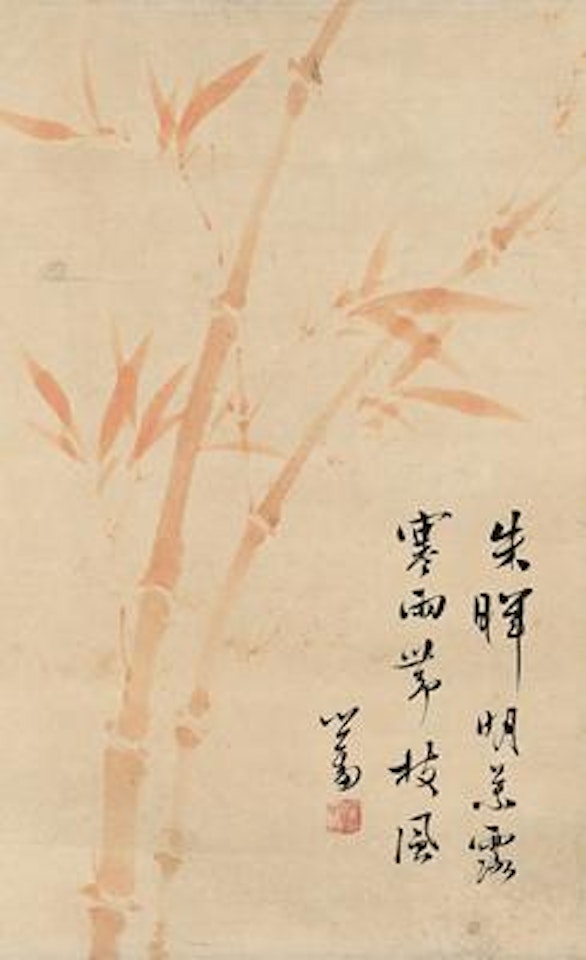 朱暉明葉露
寒雨帶枝風
心畬